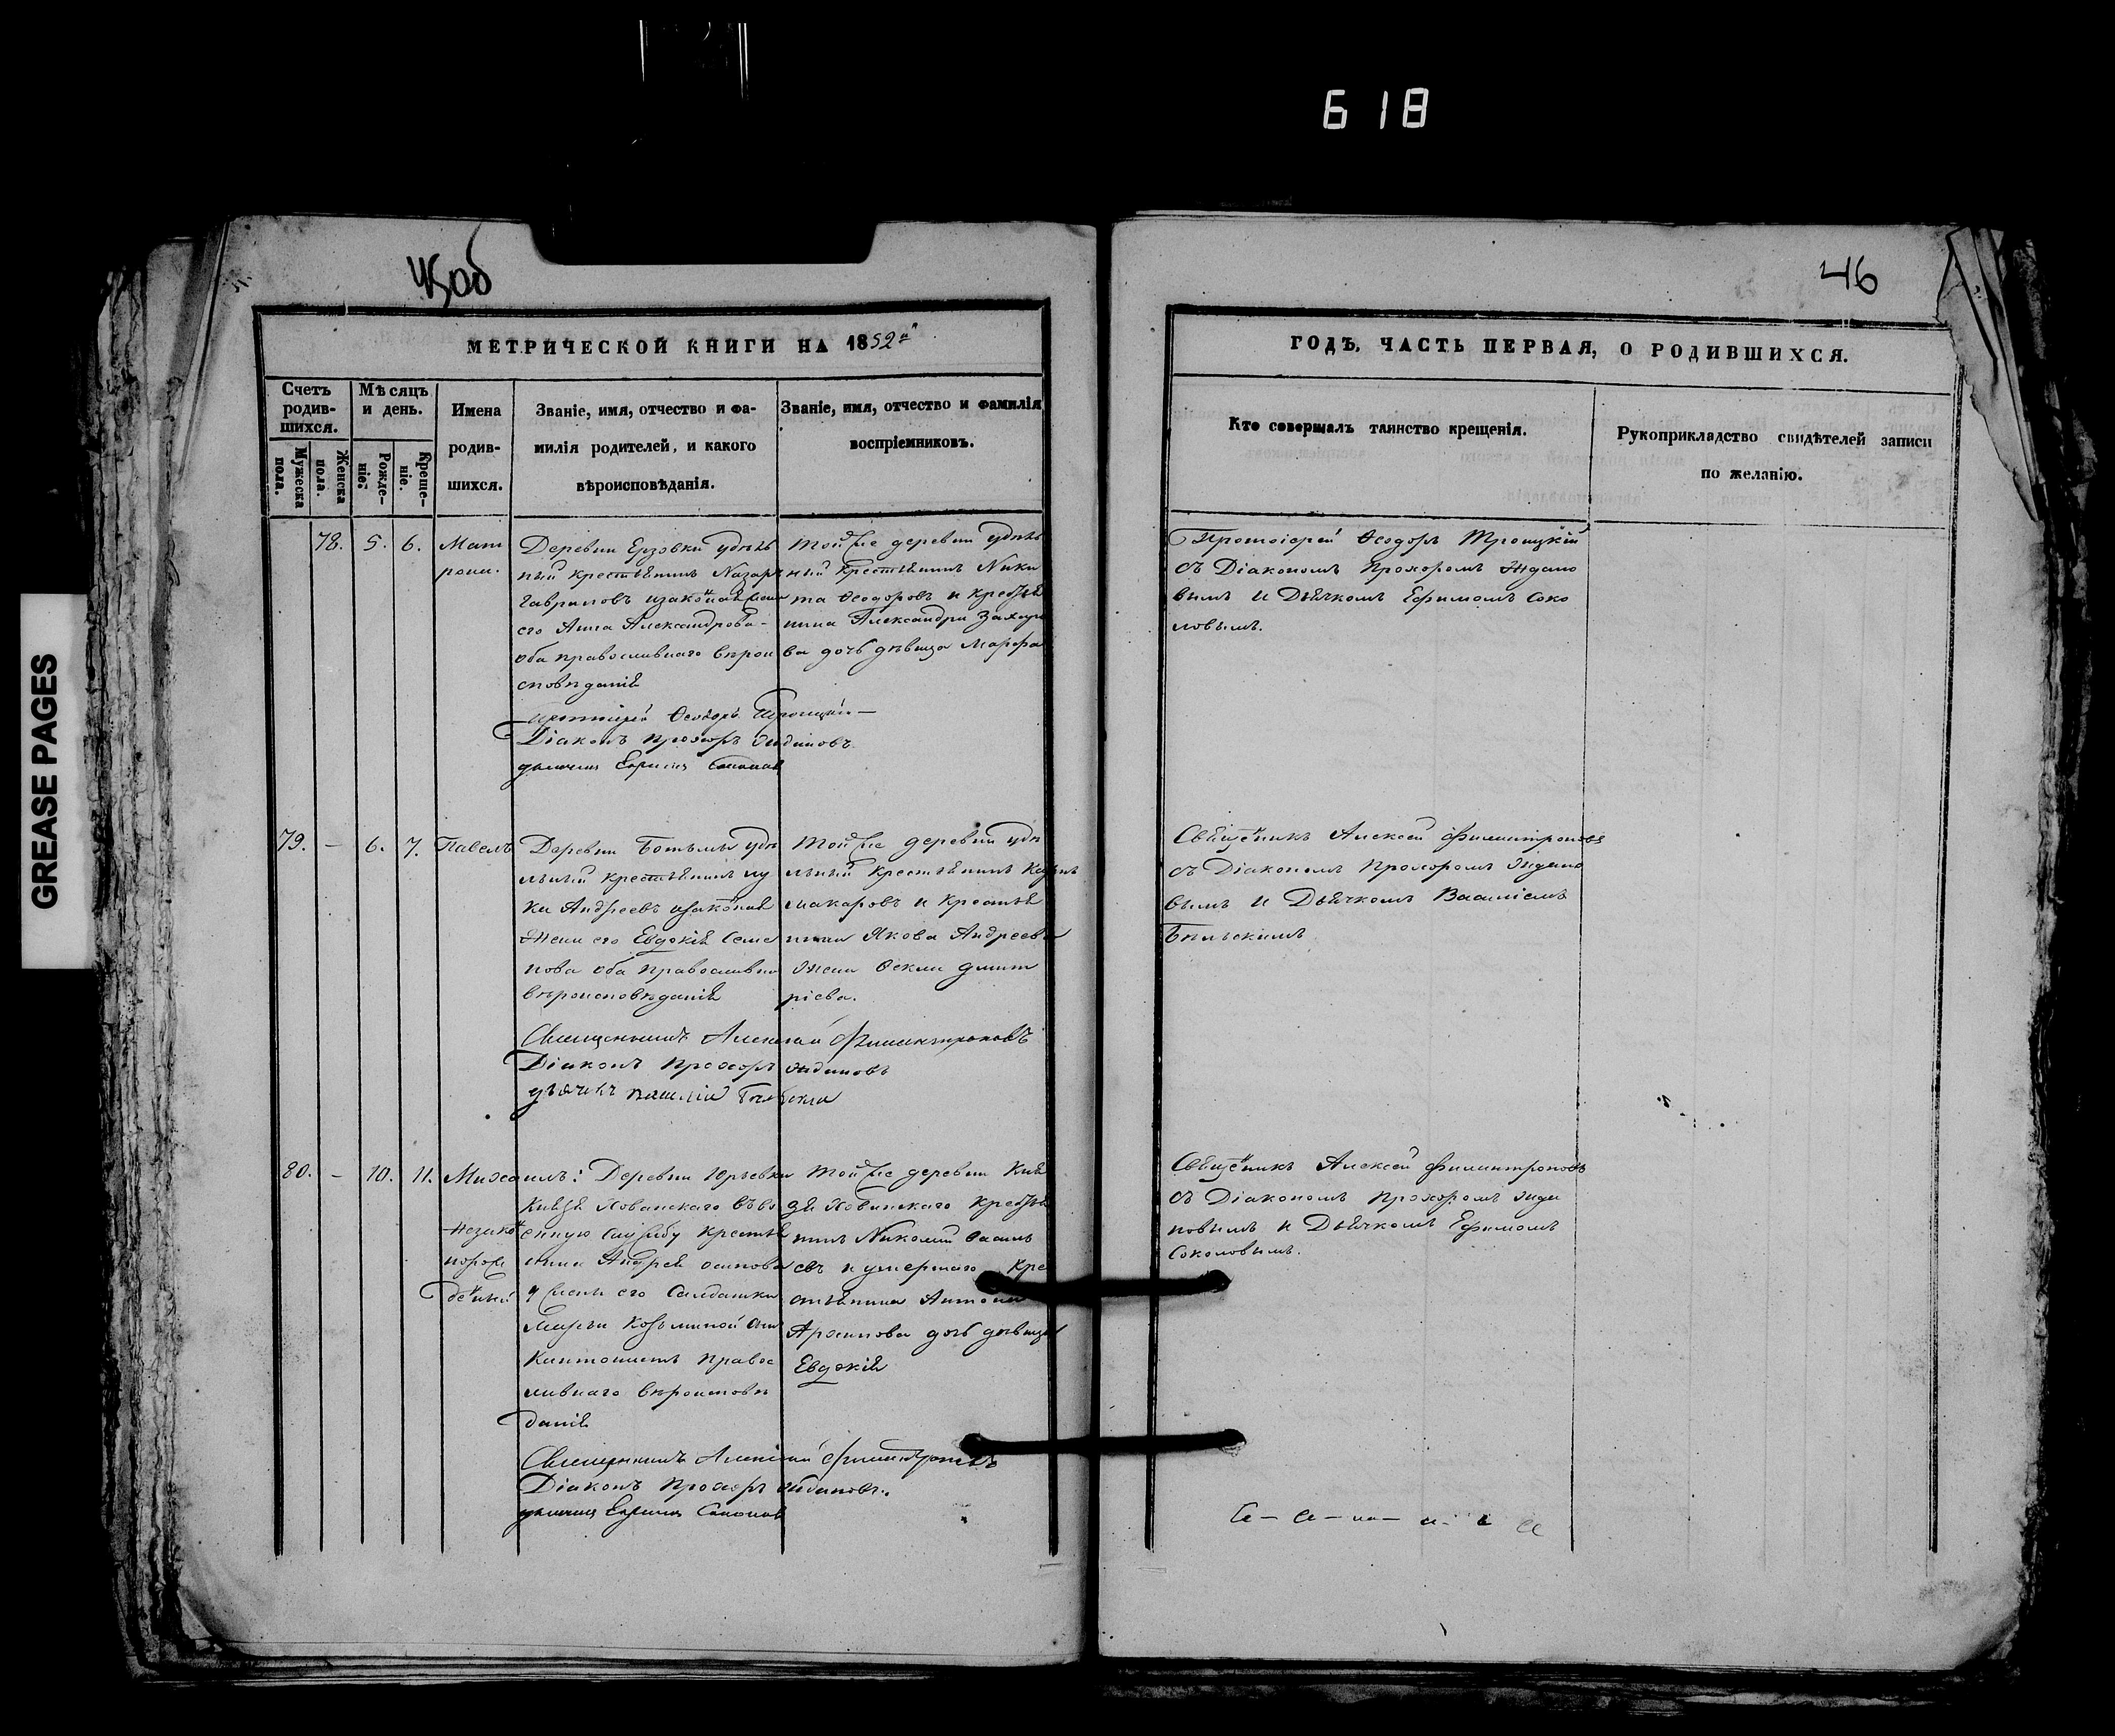 618
GREASE PAGES
45об
46
МЕТРИЧЕСКОЙ КНИГИ НА 1852й
Счетъ родившихся.
Мужеска пола.
Женска пола.
Мѣсяцъ и день.
Рожденіе.
Крещеніе.
Имена
родив-
шихся.
Званіе, имя, отчество и фа-
милія родителей, и какого
вѣроисповѣданія.
Званіе, имя, отчество и фамилія
воспріемниковъ.
ГОДЪ. ЧАСТЬ ПЕРВАЯ, О РОДИВШИХСЯ.
Кто совершалъ таинство крещенія.
Рукоприкладство свидѣтелей записи
по желанію.
78. 5. 6.
Мат
рона.
Деревни Ерзовки удѣль
ный крестьянинъ Назаръ
Гавриловъ изаконая жена
его Анна Александрова
оба православнаго вѣрои
сповѣданія
Протоіерей Ѳеодоръ Троицкій
Діаконъ Прохоръ Ждановъ
дьячекъ Ефимъ Соколов
Той же деревни удѣль
ный крестьянинъ Ники
та Ѳеодоровъ и крестья
нина Александра Захаро
ва дочь дѣвица Марфа
Протоіерей Ѳеодоръ Троицкій
съ Діакономъ Прохоромъ Ждано
вымъ и Дьячкомъ Ефимомъ Соко
ловымъ.
79. – 6. 7. Павелъ
Деревни Ботьмы удѣ
льный крестьянинъ Лу
ка Андреевъ изаконая
Жена его Евдокія Семе
нова оба православна
вѣроисповѣданія
Священникъ Алексѣй Филантроповъ
Діаконъ Прохоръ Ждановъ
дьячекъ Василій Бѣльскій
Той же деревни удѣ
льный крестьянинъ
Макаровъ и крестья
нина Якова Андреева
Жена Ѳекла Дмит
ріева.
Свяще́никъ Алексѣй Филантроповъ
съ Діакономъ Прохоромъ Ждано
вымъ и Дьячкомъ Василіемъ
Бѣльскимъ
80. – 10. 11. Михаилъ:
незако
норож
деный
Деревни Юрьевки
Князя Хованскаго въ во
енную службу крестья
нина Андрея Осипова
у жены его Салдатки
Марьи Козьминой сынъ
Кантонистъ правос
лавнаго вѣроисповѣ
данія
Священникъ Алексѣй Филантроповъ
Діаконъ Прохоръ Ждановъ.
дьячекъ Ефимъ Соколов
Той же деревни Кня
зя Хованскаго крестья
нинъ Николай Василь
евъ и умершаго Кре
стьянина Антона
Архипова дочь дѣвица
Евдокія
Свяще́никъ Алексѣй Филантроповъ
съ Діакономъ Прохоромъ Жда
новымъ и Дьячкомъ Ефимомъ
Соколовымъ.